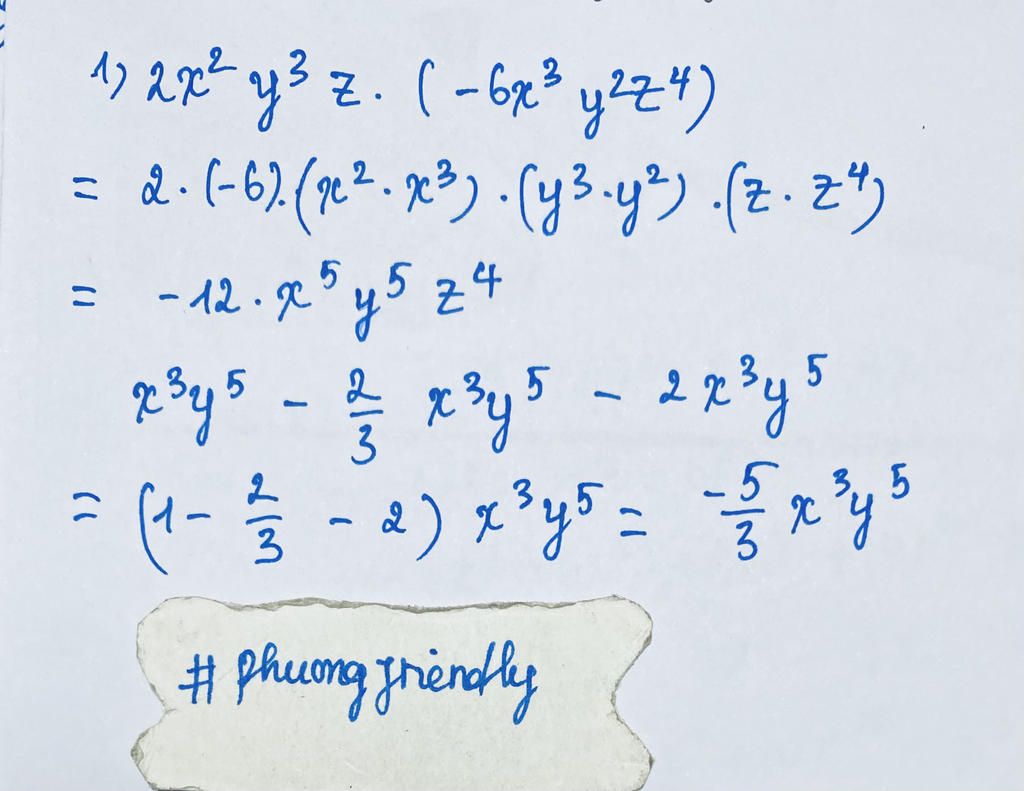 1) 2x² y³ z . ( -6x³ y²z⁴)
= 2 . (-6).(x² . x³) . (y³ . y²) . (z . z⁴)
= -12 . x⁵ y⁵ z⁴
x³y⁵ - 2/3 x³y⁵ - 2x³y⁵
= (1 - 2/3 - 2) x³y⁵ = -5/3 x³y⁵
# phuong friendly